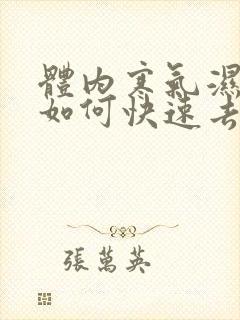 體內寒氣濕
如何快速去
張萬英